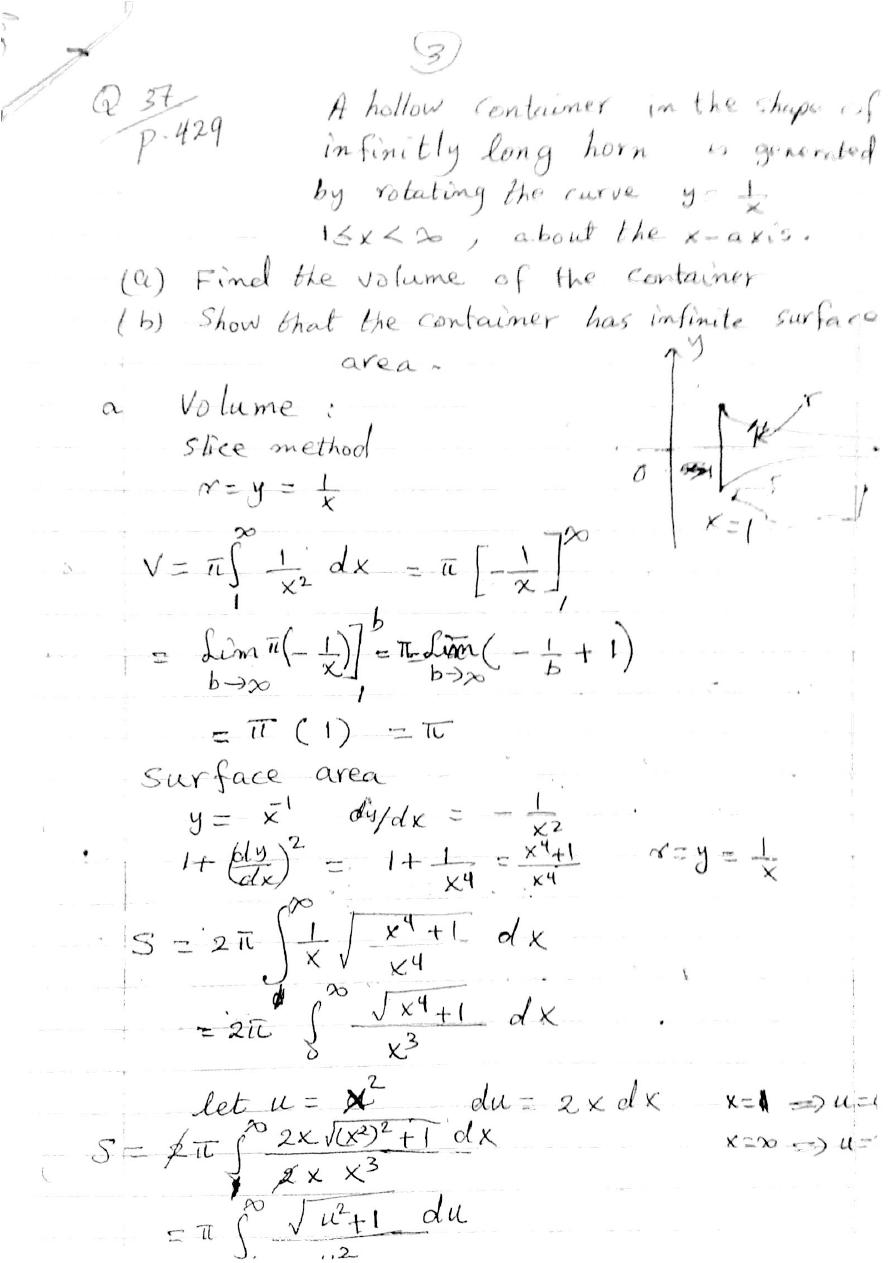 3
Q 37
p. 429
A hollow container in the shape of
infinitly long horn is generated
by rotating the curve y = 1/x
1 ≤ x < ∞ , about the x-axis.
(a) Find the volume of the container
(b) Show that the container has infinite surface
area.
y
r
0
x=1
a Volume :
slice method
r = y = 1/x
V = π ∫₁^∞ 1/x² dx = π [-1/x]₁^∞
= Lim b→∞ π(-1/x)]₁^b = π Lim b→∞ (-1/b + 1)
= π (1) = π
Surface area
y = x⁻¹ dy/dx = -1/x²
1 + (dy/dx)² = 1 + 1/x⁴ = x⁴+1/x⁴ r = y = 1/x
S = 2π ∫^∞ 1/x √(x⁴+1/x⁴) dx
= 2π ∫₀^∞ √(x⁴+1)/x³ dx
let u = x² du = 2x dx x=1 ⇒ u=
x=∞ ⇒ u=
S = 2π ∫^∞ 2x √((x²)²+1) dx / 2x x³
= π ∫^∞ √(u²+1) du